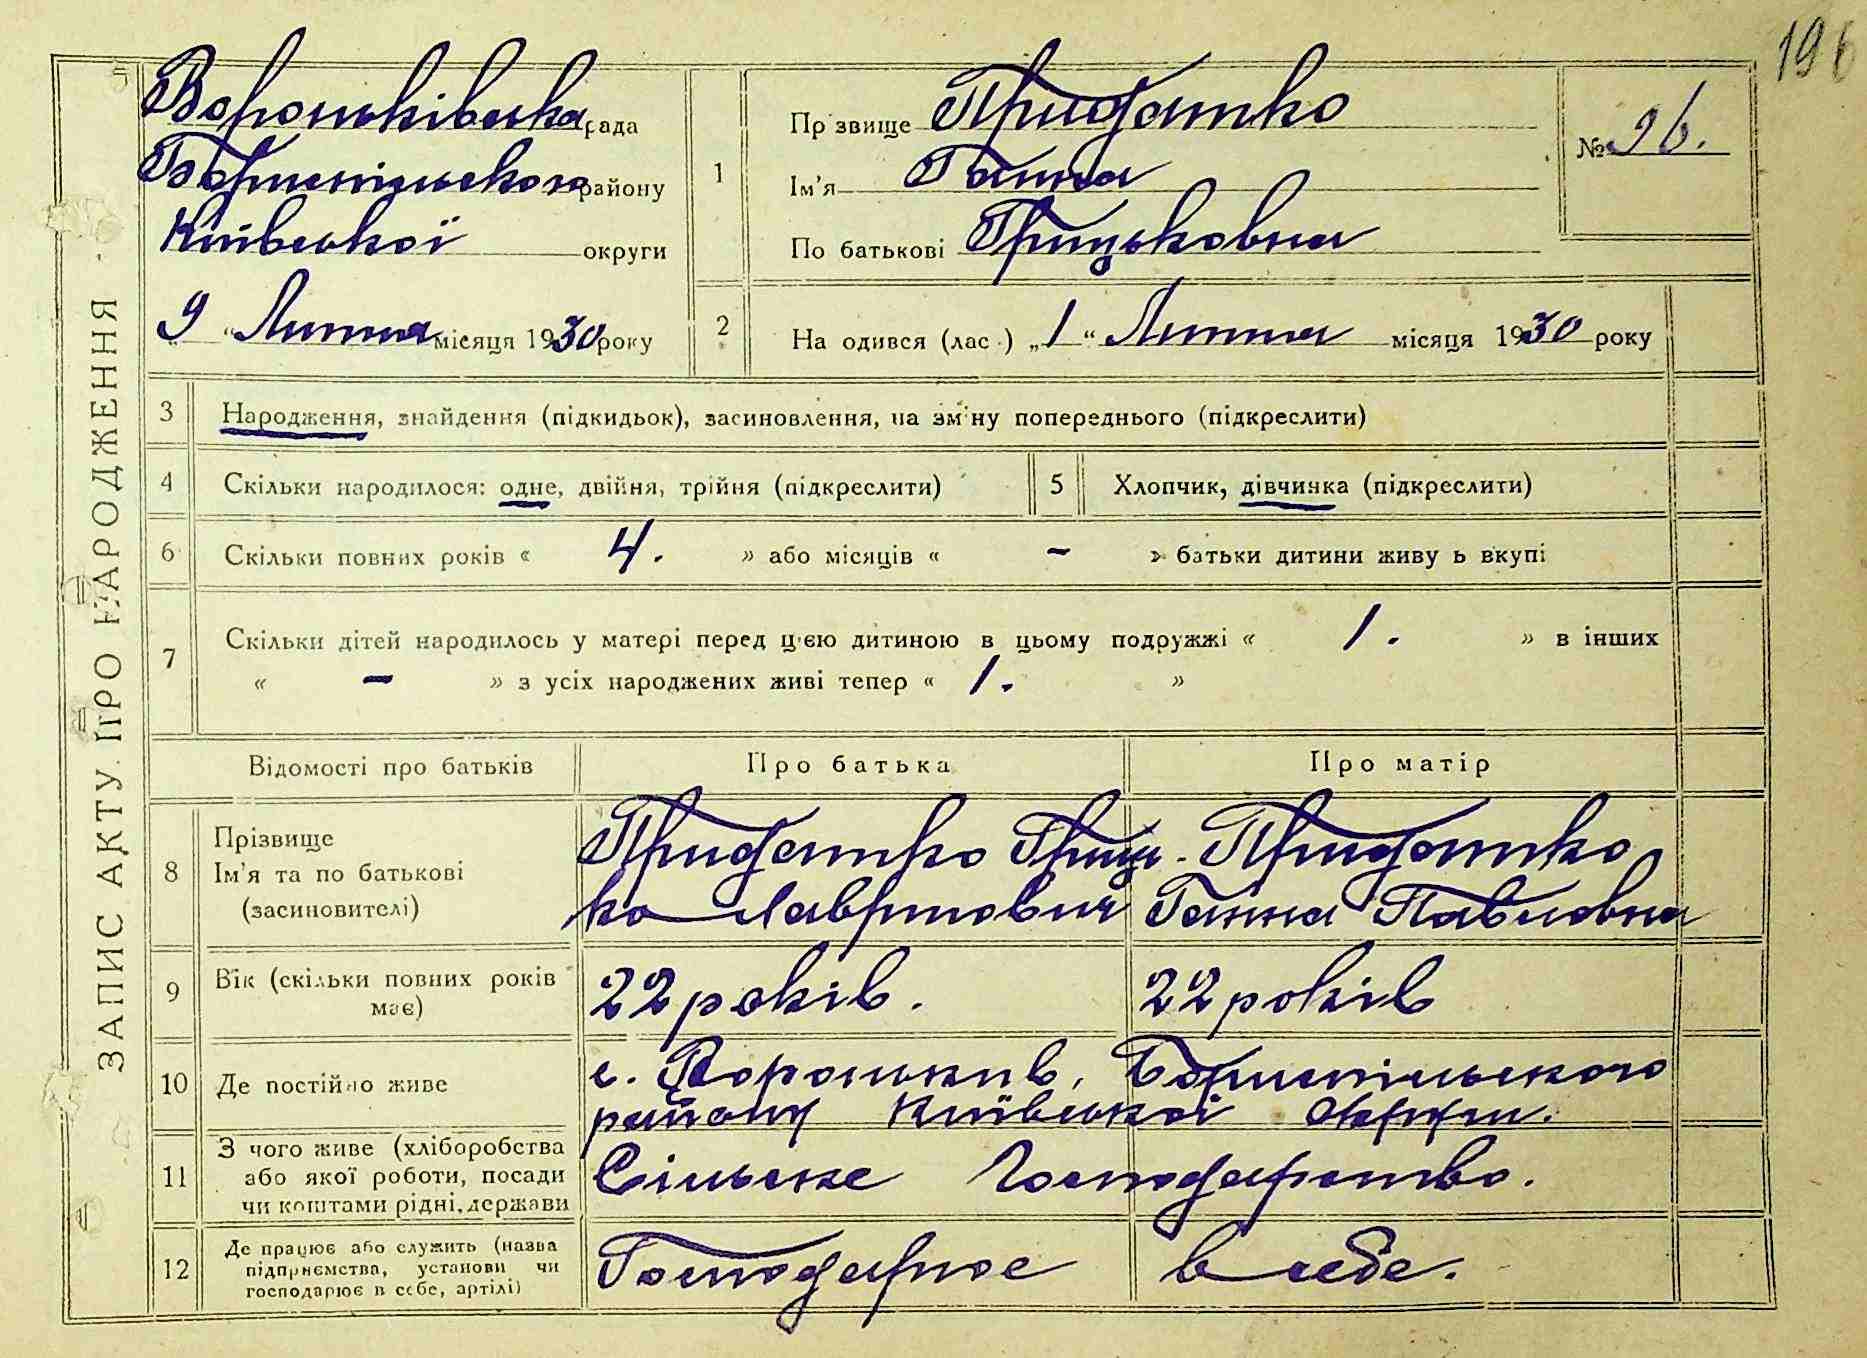 196
Вороньківська рада
Бориспільського району
Київської округи
„9“ Лютня місяця 1930 року
1
Прізвище Придатко
Ім'я Ганна
По батькові Грицьковна
№ 96.
2
На одився (лас ) „1“ Лютня місяця 1930 року
ЗАПИС АКТУ ПРО НАРОДЖЕННЯ
3 Народження, знайдення (підкидьок), засиновлення, на зм'ну попереднього (підкреслити)
4 Скільки народилося: одне, двійня, трійня (підкреслити) 5 Хлопчик, дівчинка (підкреслити)
6 Скільки повних років « 4. » або місяців « - » батьки дитини живу ь вкупі
7 Скільки дітей народилось у матері перед ц'ею дитиною в цьому подружжі « 1. » в інших
« - » з усіх народжених живі тепер « 1. »
Відомості про батьків Про батька Про матір
8 Прізвище
Ім'я та по батькові
(засиновителі)
Придатко Гриць-
ко Лаврінович
Придатко
Ганна Павловна
9 Вік (скільки повних років
має)
22 років. 22 років
10 Де постійно живе
с. Вороньків, Бориспільського
району Київської округи.
11 З чого живе (хліборобства
або якої роботи, посади
чи коштами рідні, держави
Сільське Господарство.
12 Де працює або служить (назва
підприємства, установи чи
господарює в себе, артілі)
Господарює в себе.